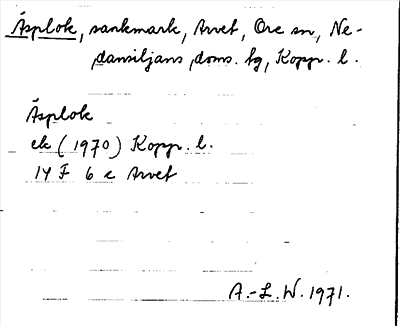 Åsplok, sankmark, Arvet, Ore sn, Ne-
dansiljans doms. tg, Kopp. l.
Åsplok
ek (1970) Kopp. l.
14 F 6 e Arvet
A.-L. W. 1971.